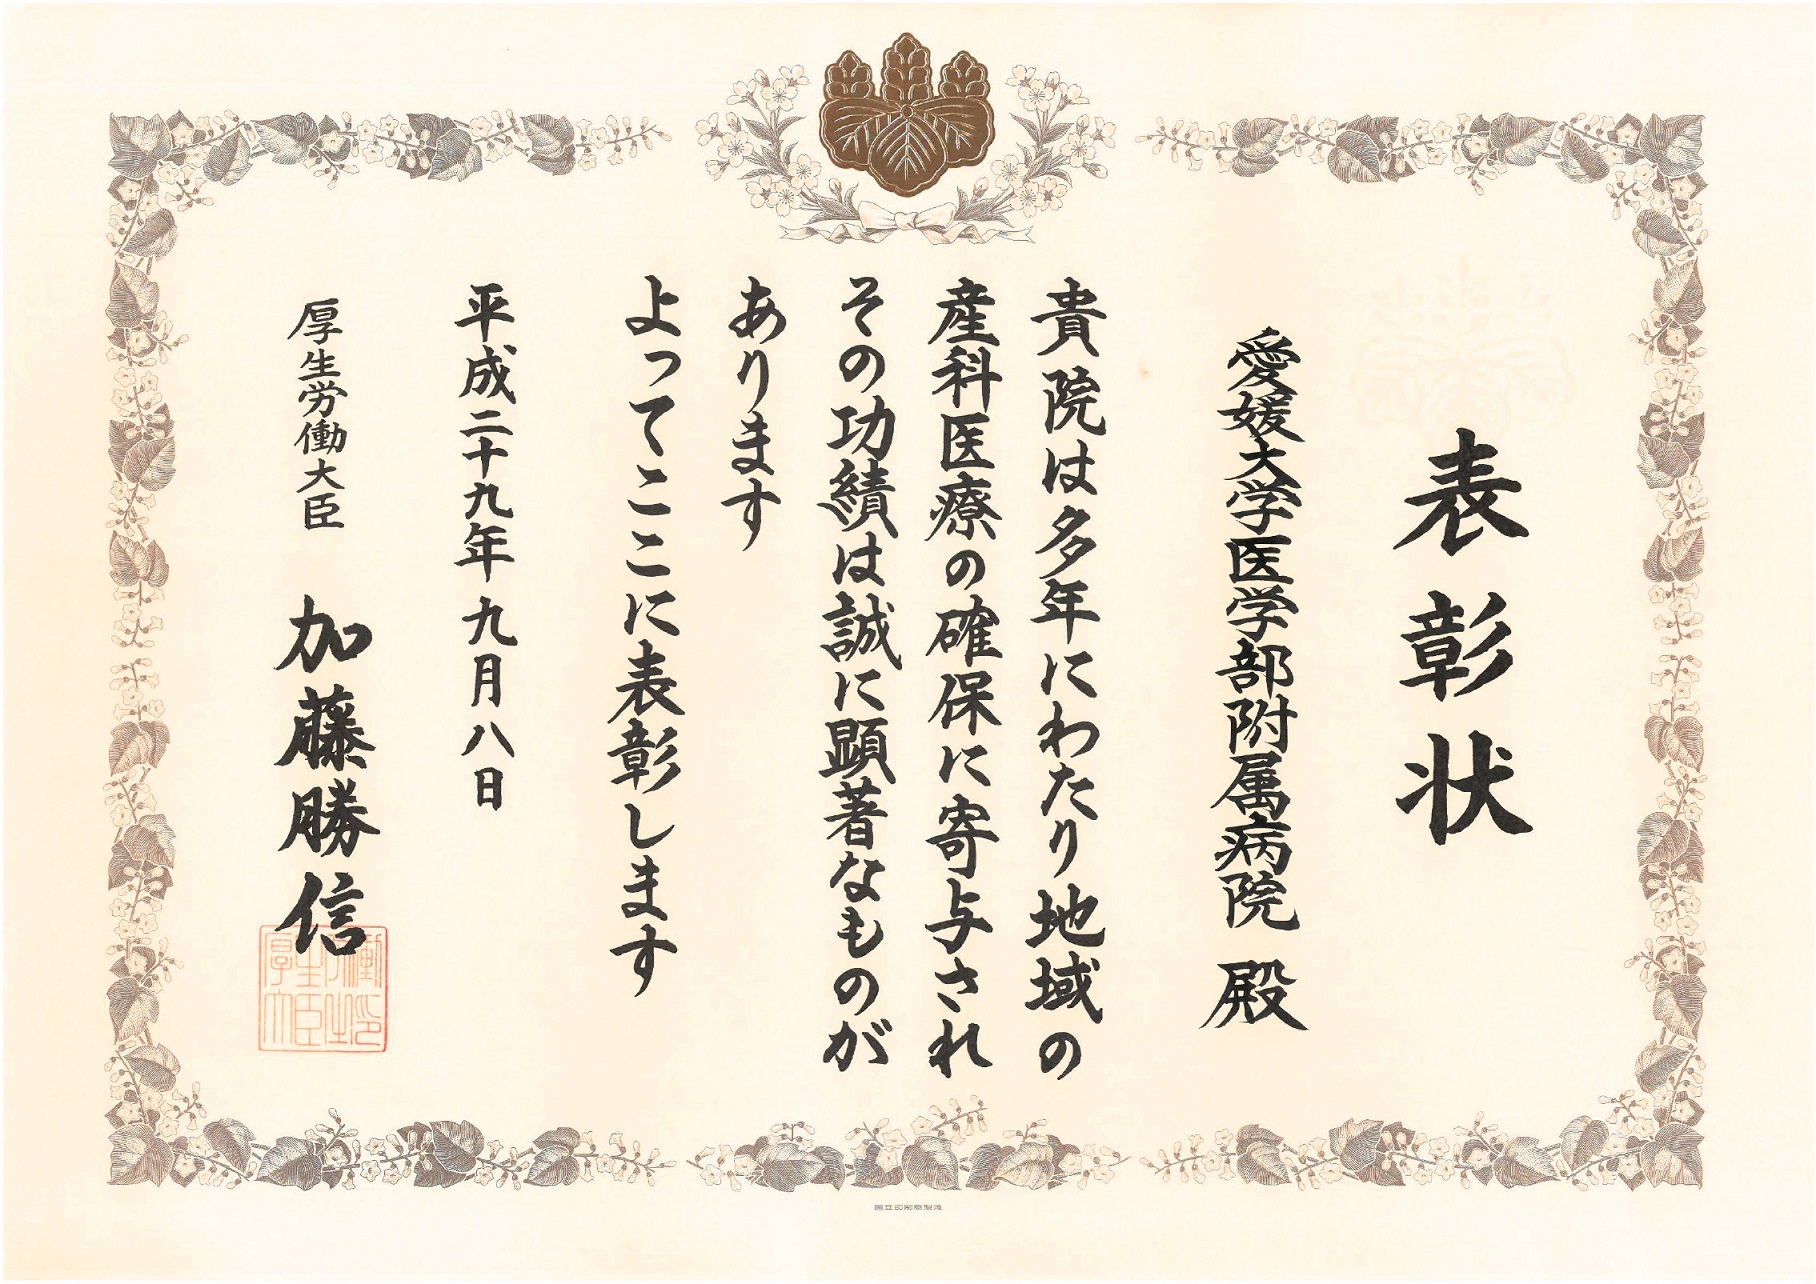 表彰状
愛媛大学医学部附属病院 殿
貴院は多年にわたり地域の
産科医療の確保に寄与され
その功績は誠に顕著なものが
あります
よってここに表彰します
平成二十九年九月八日
厚生労働大臣 加藤勝信
国立印刷局製造